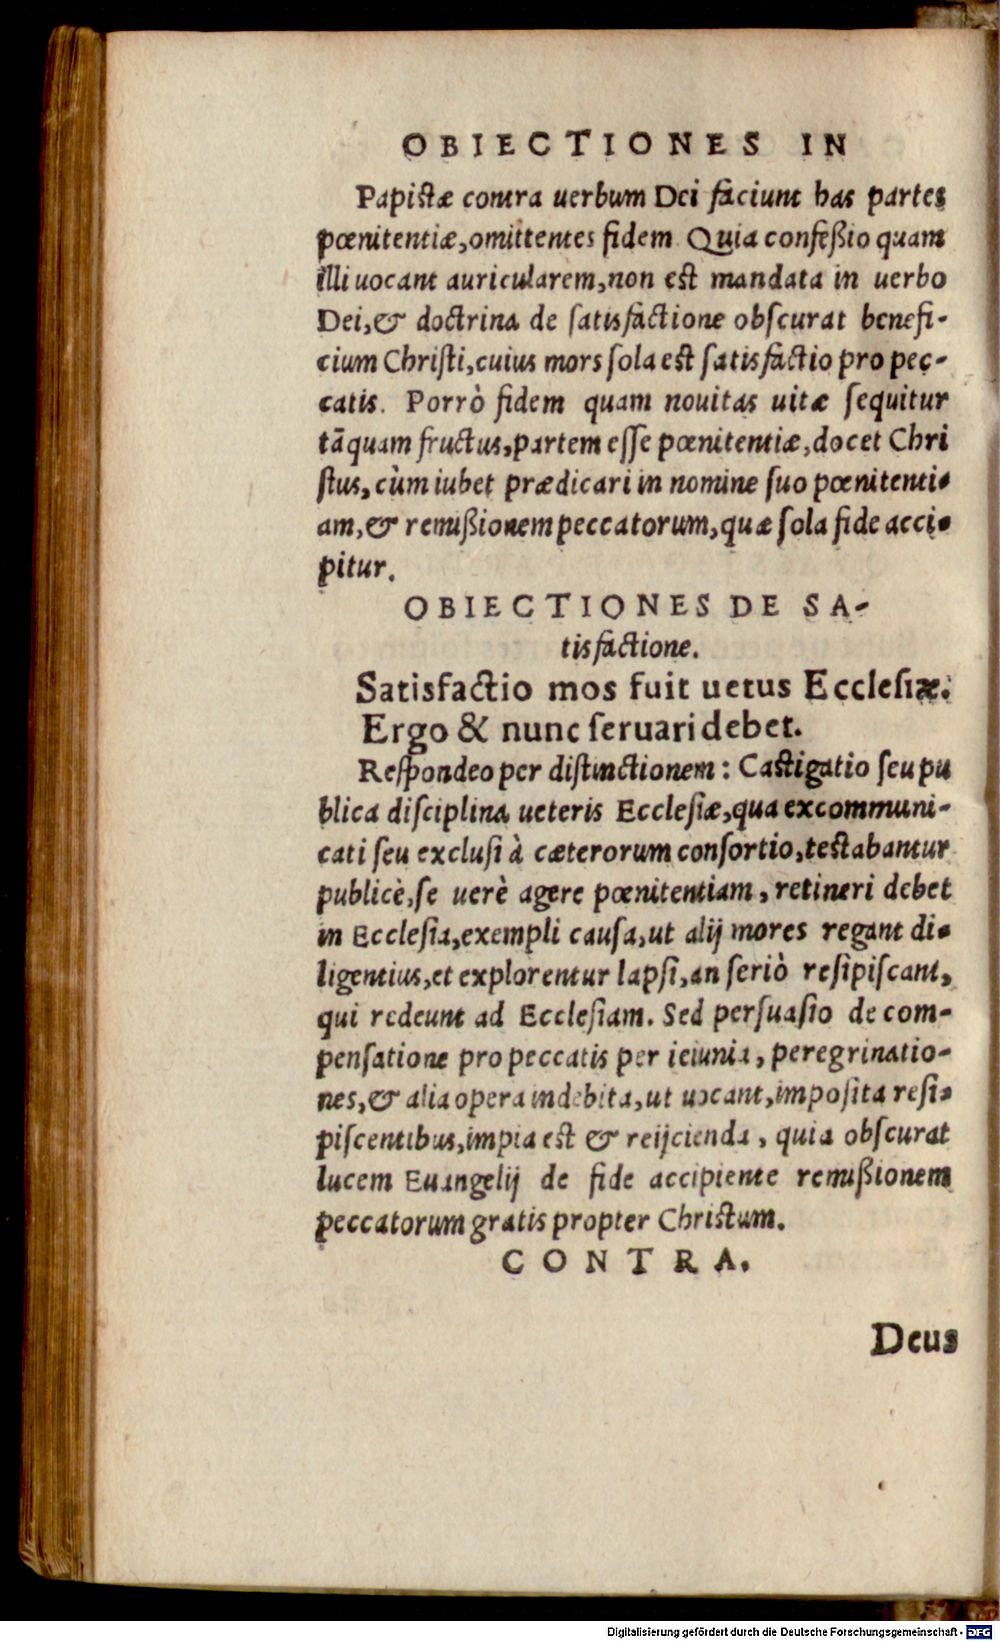 OBIECTIONES IN
Papistæ contra uerbum Dei faciunt has partes
pœnitentiæ, omittentes fidem. Quia confeßio quam
illi uocant auricularem, non est mandata in uerbo
Dei, & doctrina de satisfactione obscurat benefi-
cium Christi, cuius mors sola est satisfactio pro pec-
catis. Porrò fidem quam nouitas uitæ sequitur
tāquam fructus, partem esse pœnitentiæ, docet Chri
stus, cùm iubet prædicari in nomine suo pœnitenti-
am, & remißionem peccatorum, quæ sola fide acci-
pitur.
OBIECTIONES DE SA-
tisfactione.
Satisfactio mos fuit uetus Ecclesiæ.
Ergo & nunc seruari debet.
Respondeo per distinctionem: Castigatio seu pu
blica disciplina ueteris Ecclesiæ, qua excommuni-
cati seu exclusi à cæterorum consortio, testabantur
publicè, se uerè agere pœnitentiam, retineri debet
in Ecclesia, exempli causa, ut alij mores regant di-
ligentius, et explorentur lapsi, an seriò resipiscant,
qui redeunt ad Ecclesiam. Sed persuasio de com-
pensatione pro peccatis per ieiunia, peregrinatio-
nes, & alia opera indebita, ut uocant, imposita resi-
piscentibus, impia est & reijcienda, quia obscurat
lucem Euangelij de fide accipiente remißionem
peccatorum gratis propter Christum.
CONTRA.
Deus
Digitalisierung gefördert durch die Deutsche Forschungsgemeinschaft - DFG